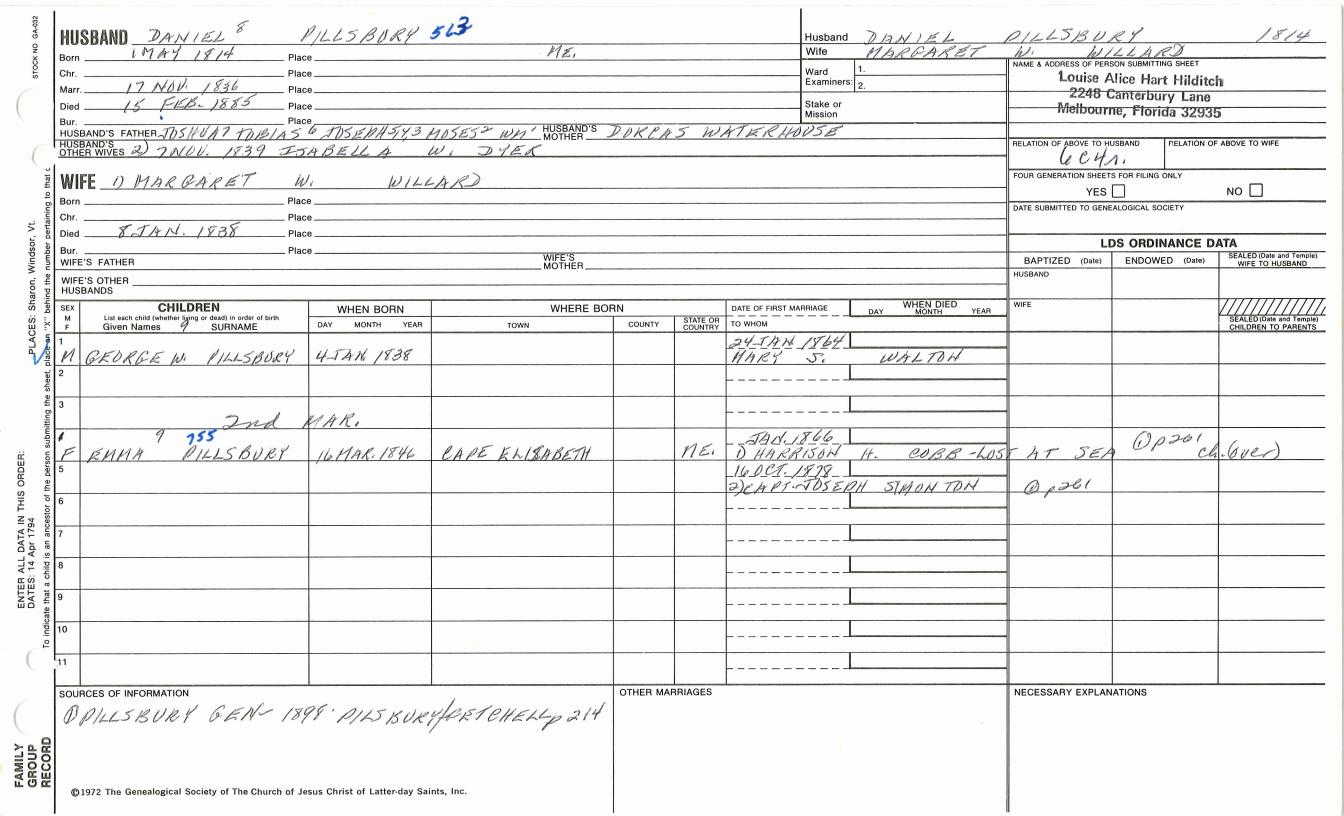 STOCK NO GA-032
HUSBAND DANIEL 8 PILLSBURY 563
Born 1 MAY 1814 Place ME.
Chr. Place
Marr. 17 NOV. 1836 Place
Died 15 FEB. 1885 Place
Bur. Place
HUSBAND'S FATHER JOSHUA 7 TOBIAS 6 JOSEPH 5,4,3 MOSES 2 WM 1 HUSBAND'S MOTHER DORCAS WATERHOUSE
HUSBAND'S OTHER WIVES 2) 7 NOV. 1839 ISABELLA W. DYER
Husband DANIEL PILLSBURY 1814
Wife MARGARET W. WILLARD
Ward Examiners: 1.
2.
Stake or Mission
NAME & ADDRESS OF PERSON SUBMITTING SHEET
Louise Alice Hart Hilditch
2248 Canterbury Lane
Melbourne, Florida 32935
RELATION OF ABOVE TO HUSBAND RELATION OF ABOVE TO WIFE
6C4r.
FOUR GENERATION SHEETS FOR FILING ONLY
YES NO
DATE SUBMITTED TO GENEALOGICAL SOCIETY
WIFE 1) MARGARET W. WILLARD
Born Place
Chr. Place
Died 8 JAN. 1838 Place
Bur. Place
WIFE'S FATHER WIFE'S MOTHER
WIFE'S OTHER HUSBANDS
LDS ORDINANCE DATA
BAPTIZED (Date) ENDOWED (Date) SEALED (Date and Temple) WIFE TO HUSBAND
HUSBAND
WIFE
SEALED (Date and Temple) CHILDREN TO PARENTS
SEX M F
CHILDREN
List each child (whether living or dead) in order of birth
Given Names 9 SURNAME
WHEN BORN
DAY MONTH YEAR
WHERE BORN
TOWN COUNTY STATE OR COUNTRY
DATE OF FIRST MARRIAGE
TO WHOM
WHEN DIED
DAY MONTH YEAR
1 24 JAN 1864
M GEORGE W. PILLSBURY 4 JAN 1838 MARY S. WALTON
2
3
2nd MAR.
9 755 JAN. 1866
F EMMA PILLSBURY 16 MAR. 1846 CAPE ELIZABETH ME. 1) HARRISON H. COBB - LOST AT SEA ① p261 ch. (over)
5 16 OCT. 1878
2) CAPT. JOSEPH SIMONTON ① p261
6
7
8
9
10
11
SOURCES OF INFORMATION
① PILLSBURY GEN - 1898 · PILSBURY/GETCHELL p 214
OTHER MARRIAGES
NECESSARY EXPLANATIONS
©1972 The Genealogical Society of The Church of Jesus Christ of Latter-day Saints, Inc.
ENTER ALL DATA IN THIS ORDER:
DATES: 14 Apr 1794
PLACES: Sharon, Windsor, Vt.
To indicate that a child is an ancestor of the person submitting the sheet, place an "X" behind the number pertaining to that c
FAMILY GROUP RECORD